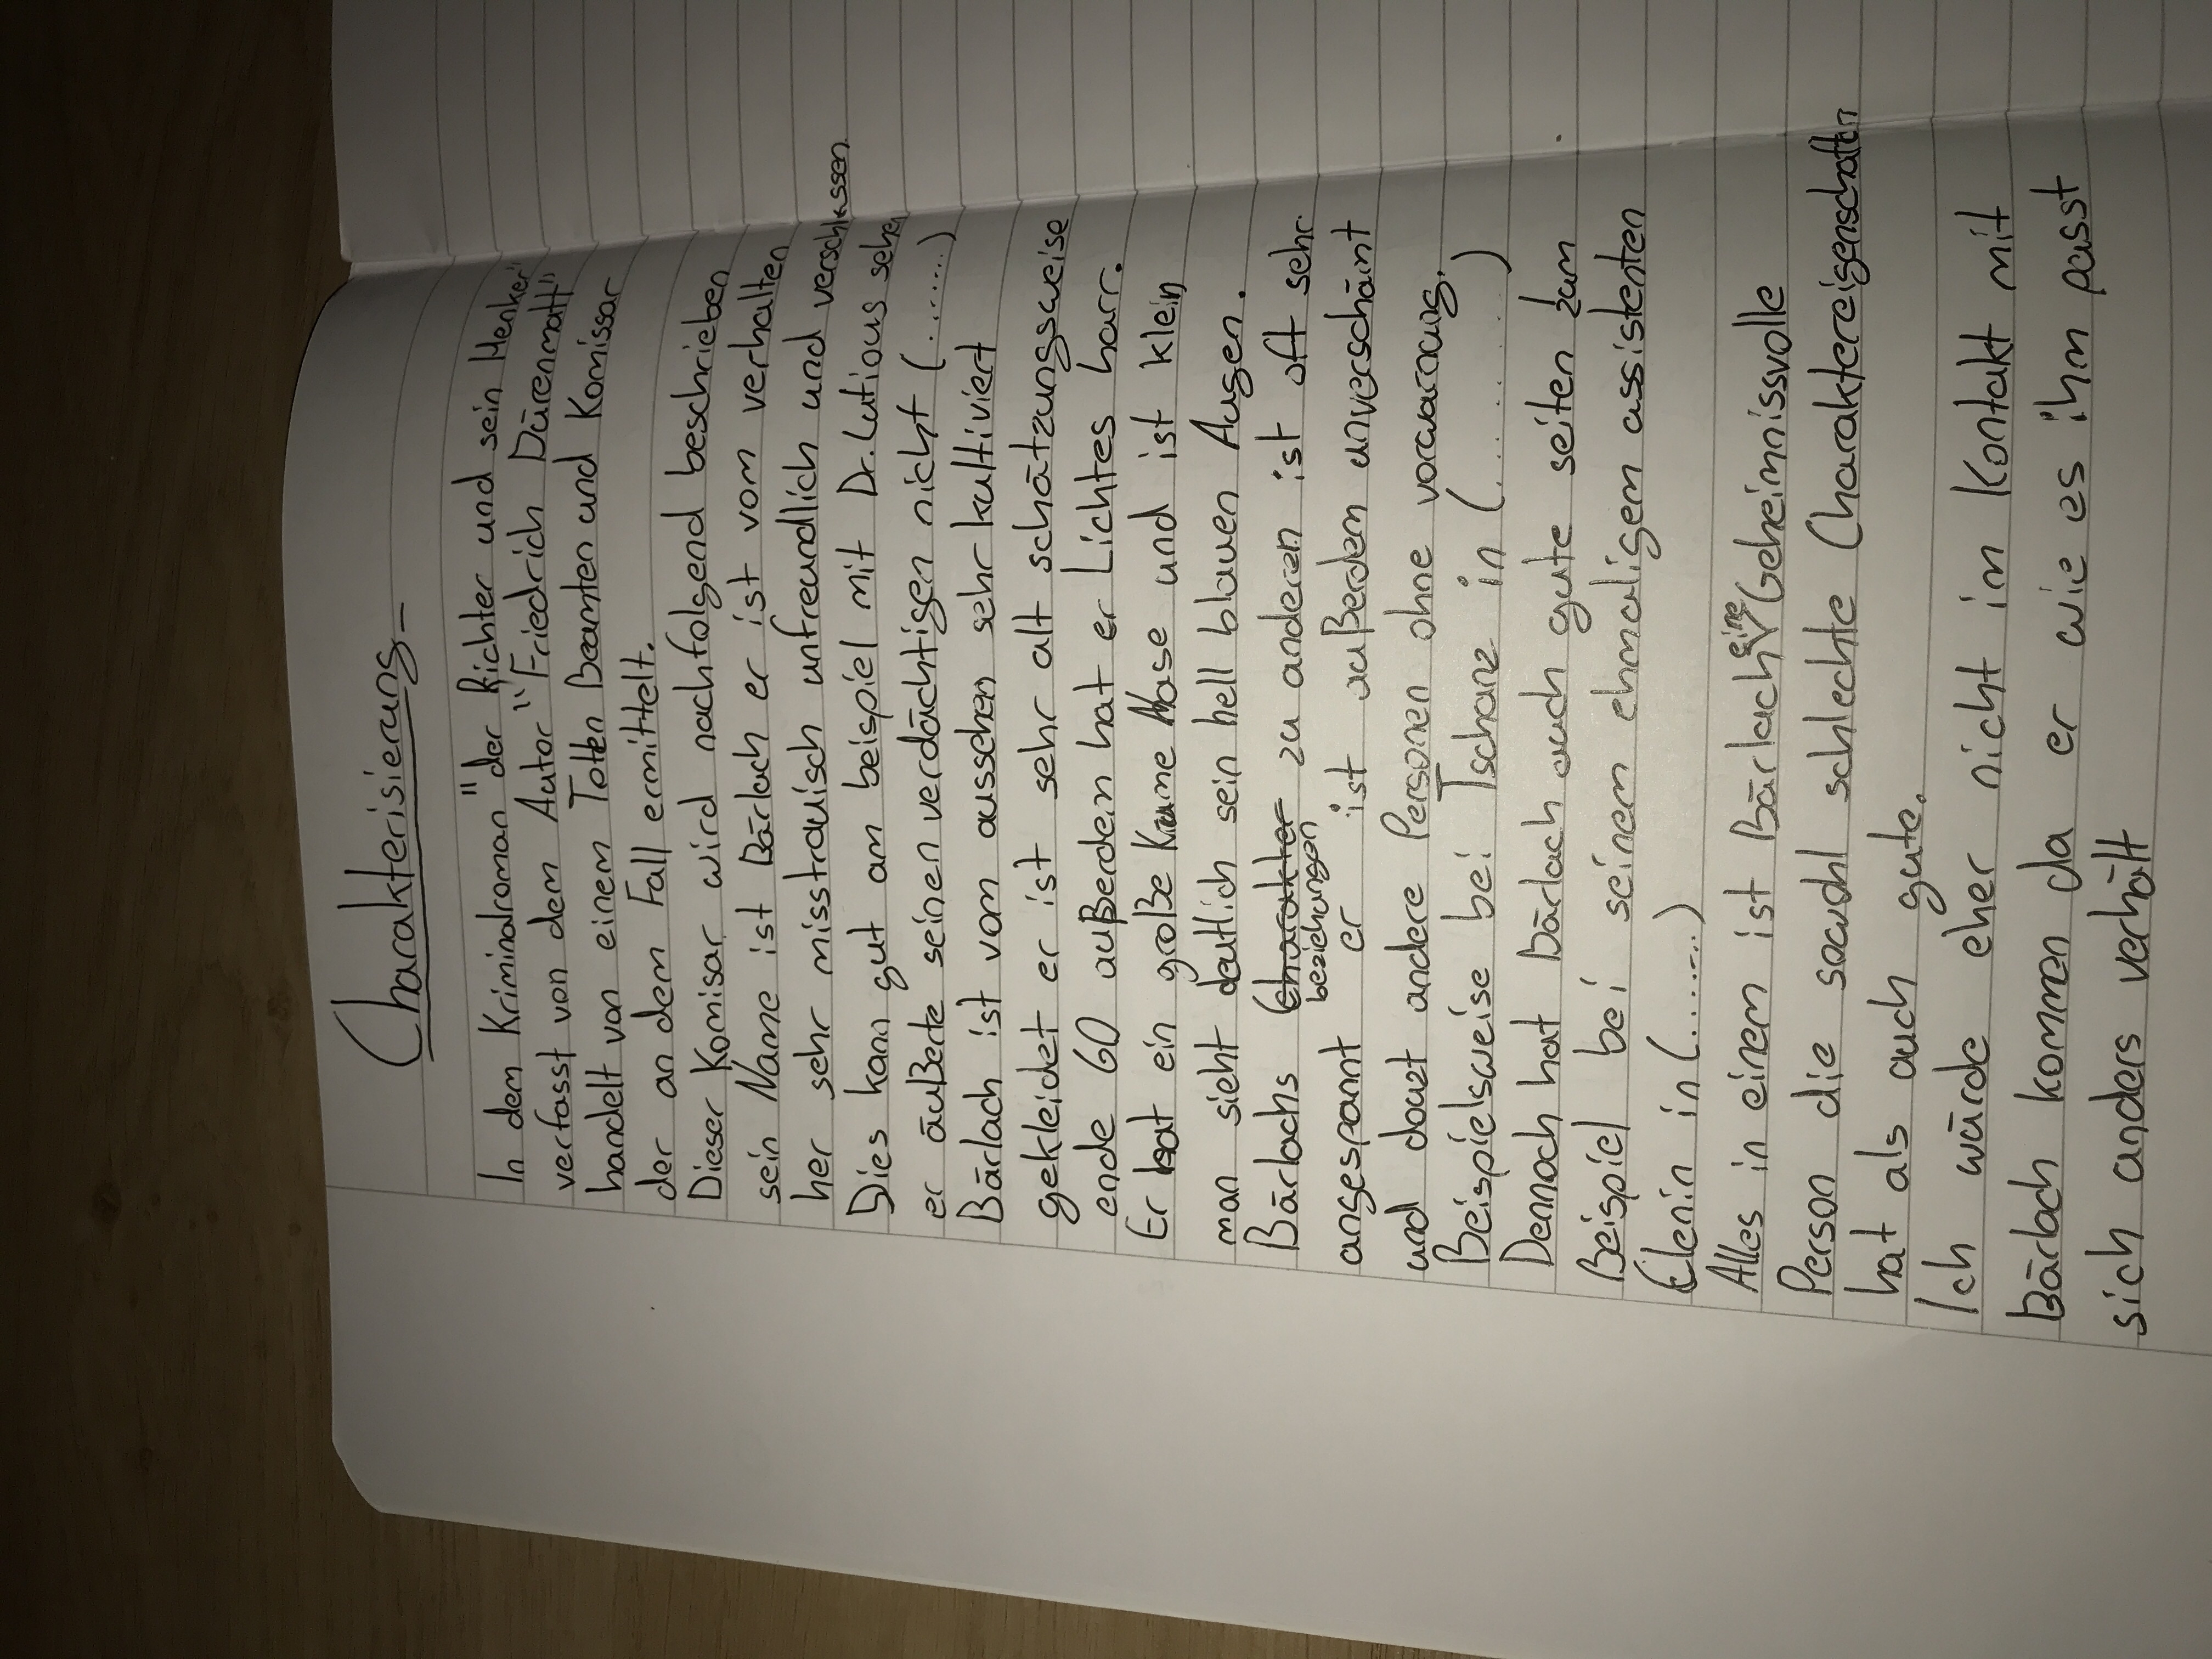 Charakterisierung
In dem Kriminalroman "der Richter und sein Henker"
verfasst von dem Autor "Friedrich Dürenmatt"
handelt von einem Toten Beamten und Komissar
der an dem Fall ermittelt.
Dieser Komisar wird nachfolgend beschrieben
sein Name ist Bärlach er ist vom verhalten
her sehr misstrauisch unfreundlich und verschlossen.
Dies kann gut am beispiel mit Dr. Lutious sehen
er äußerte seinen verdächtigen nicht (.......)
Bärlach ist vom aussehen sehr kultiviert
gekleidet er ist sehr alt schätzungsweise
ende 60 außerdem hat er Lichtes harr.
Er hat ein große Krume Nase und ist klein
man sieht deutlich sein hell blauen Augen.
Bärlachs Charakter zu anderen ist oft sehr
beziehungen
angespannt er ist außerdem unverschämt
und dauzt andere Personen ohne vorwarnung.
Beispielsweise bei Tschanz in (..........)
Dennoch hat Bärlach auch gute seiten zum
Beispiel bei seinem ehmaligem assistenten
in (......)
Alles in einem ist Bärlach eine Geheimnissvolle
Person die sowohl schlechte Charaktereigenschaften
hat als auch gute.
Ich würde eher nicht im Kontakt mit
Bärlach kommen da er wie es ihm passt
sich anders verhält